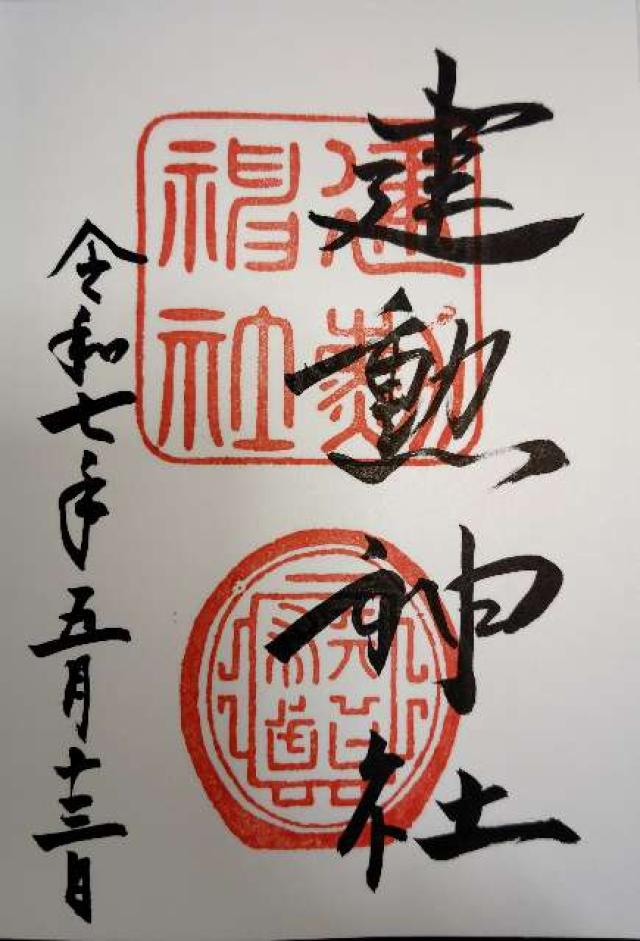 建勲神社
令和七年五月十三日
建勲
神社